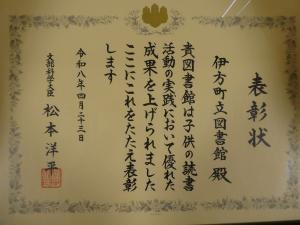 表彰状
伊方町立図書館 殿
貴図書館は子供の読書
活動の実践において優れた
成果を上げられました
ここにこれをたたえ表彰
します
令和八年四月二十三日
文部科学大臣 松本洋平